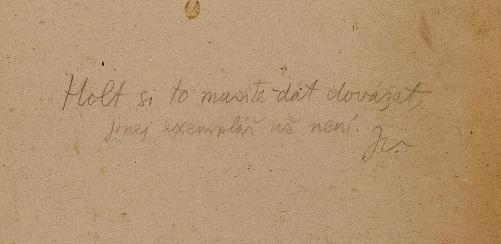 Holt si to musíte dát dovázat,
jinej exemplář už není.